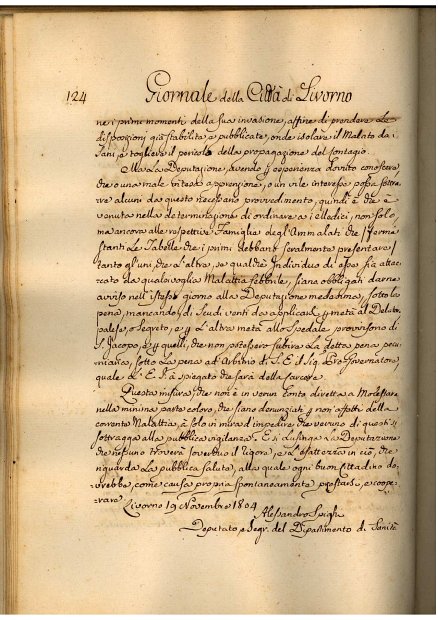 124 Giornale della Città di Livorno
ne i primi momenti della sua invasione, affine di prendere le
disposizioni già stabilite, e pubblicate, onde isolare il Malato da i
Sani, e togliere il pericolo della propagazione del contagio.
Ma la Deputazione, avendo p esperienza dovuto conoscere,
che o una male intesa apprenzione, o un vile interesse possa sottra-
re alcuni da questo necessario provvedimento, quindi è che è
venuta nella determinazione di ordinare a i Medici, non solo,
ma ancora alle respettive Famiglie degl'Ammalati che
stanti le Tabelle che i primi debbano seralmente presentare,
tanto gl'uni, che l'altre, se qualche Individuo di esse sia attac-
cato da qualsivoglia Malattia febbrile, siano obbligati darne
avviso nell'istesso giorno alla Deputazione medesima, sotto la
pena, mancando, di Scudi venti da applicarsi p metà al Delato-
palese, o segreto, e p l'altra metà allo Spedale provvisorio di
S. Jacopo, e p quelli, che non potessero subire la detta pena pecu-
niaria, sotto la pena ad arbitrio di S. E. il Sig. Pro Governatore
quale l'E. S. à spiegato che sarà della carcere.
Questa misura, che non è in verun conto diretta a molestare
nella minima parte coloro, che siano denunziati p non affetti della
corrente Malattia, è solo in mira d'impedire che veruno di questi si
sottragga alla pubblica vigilanza. E si lusinga la Deputazione
che nessuno troverà soverchio il rigore, e l'esattezza in ciò, che
riguarda la pubblica salute, alla quale ogni buon Cittadino do-
vrebbe, come causa propria spontaneamente prestarsi, e coope-
rare
Livorno 19 Novembre 1804
Alessandro
Deputato e Segr. del Dipartimento di Sanità